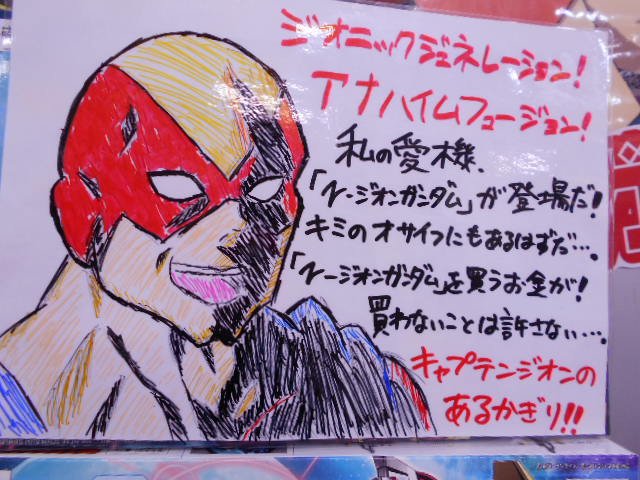 ジオニックジェネレーション!
アナハイムフュージョン!
私の愛機、
「レージオンガンダム」が登場だ!
キミのオサイフにもあるはずだ…。
「レージオンガンダム」を買うお金が!
買わないことは許さない…。
キャプテンジオンの
あるかぎり!!